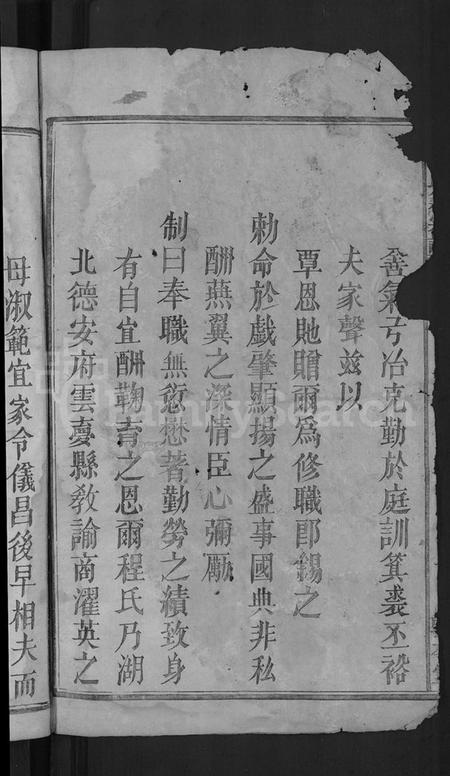 善氣弓冶克勤於庭訓箕裘丕裕
夫家聲茲以
覃恩貤贈爾為修職郎錫之
勅命於戲肇顯揚之盛事國典非私
酬燕翼之深情臣心彌勵
制曰奉職無愆懋著勤勞之績致身
有自宜酬鞠育之恩爾程氏乃湖
北德安府雲夢縣教諭商濯英之
母淑範宜家令儀昌後早相夫而
FamilySearch